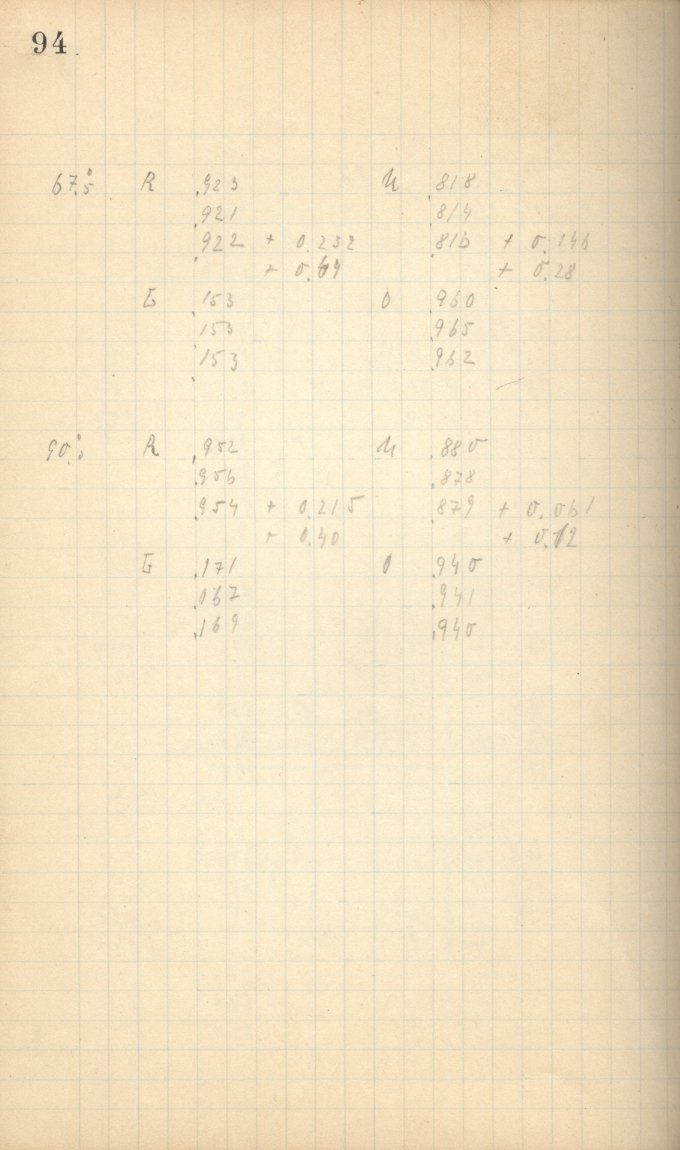 94
67.°5 R .923 U .818
.921 .814
.922 + 0.232 .816 + 0.146
+ 0.44 + 0.28
G .153 O .960
.153 .965
.153 .962
90.°0 R .952 U .880
.956 .878
.954 + 0.215 .879 + 0.061
+ 0.40 + 0.12
G .171 O .940
.167 .941
.169 .940